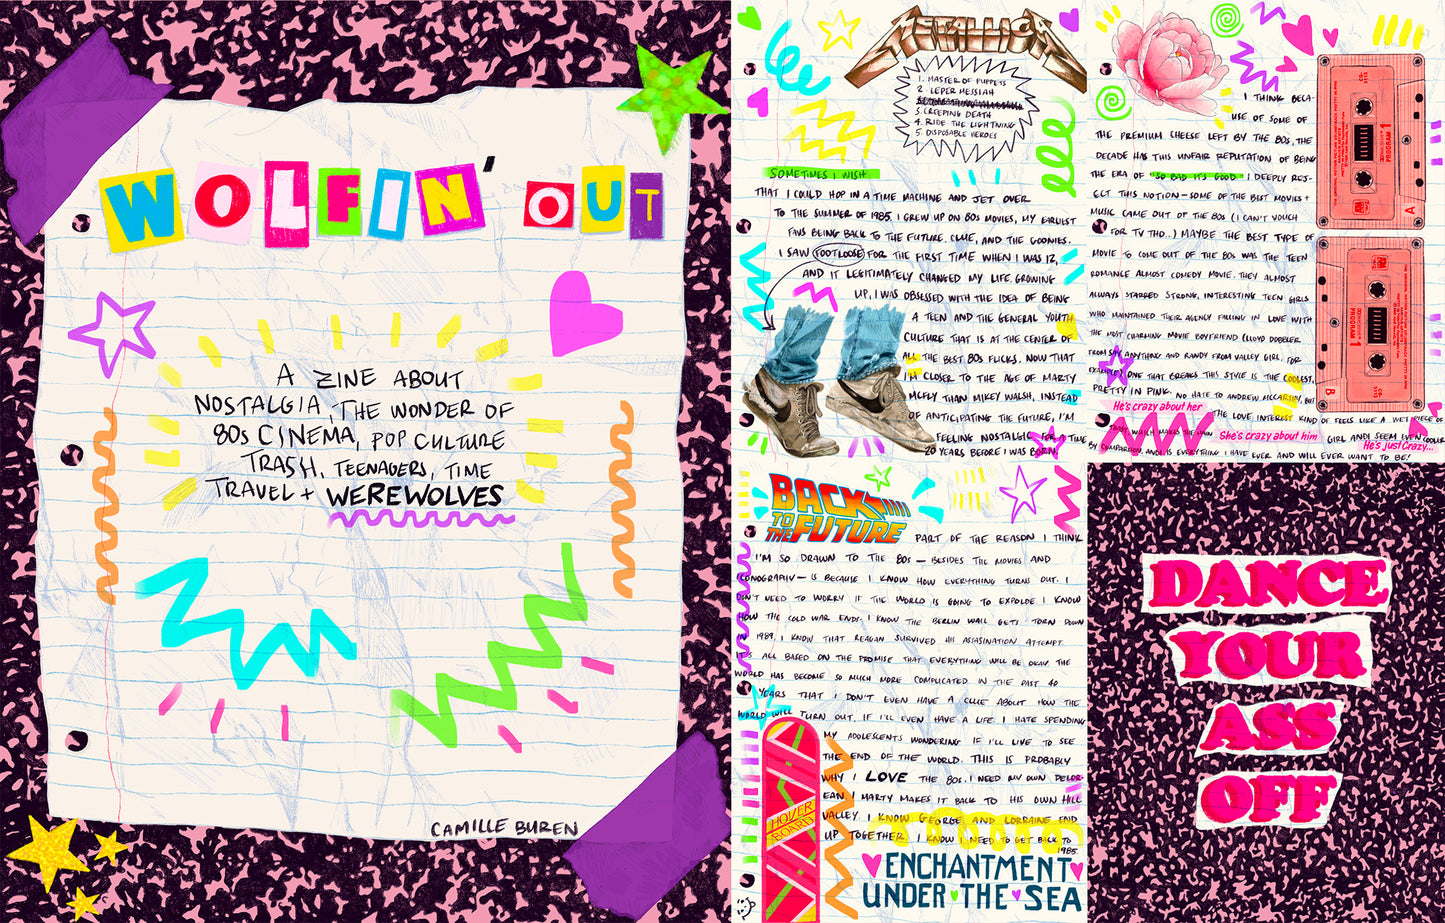 WOLFIN' OUT
A ZINE ABOUT
NOSTALGIA, THE WONDER OF
80s CINEMA, POP CULTURE
TRASH, TEENAGERS, TIME
TRAVEL + WEREWOLVES
CAMILLE BUREN
METALLICA
1. MASTER OF PUPPETS
2. LEPER MESSIAH
3. CREEPING DEATH
4. RIDE THE LIGHTNING
5. DISPOSABLE HEROES
SOMETIMES I WISH
THAT I COULD HOP IN A TIME MACHINE AND JET OVER
TO THE SUMMER OF 1985. I GREW UP ON 80s MOVIES, MY EARLIEST
FAVS BEING BACK TO THE FUTURE, CLUE, AND THE GOONIES.
I SAW FOOTLOOSE FOR THE FIRST TIME WHEN I WAS 12,
AND IT LEGITIMATELY CHANGED MY LIFE. GROWING
UP, I WAS OBSESSED WITH THE IDEA OF BEING
A TEEN AND THE GENERAL YOUTH
CULTURE THAT IS AT THE CENTER OF
ALL THE BEST 80s FLICKS. NOW THAT
I'M CLOSER TO THE AGE OF MARTY
MCFLY THAN MIKEY WALSH, INSTEAD
OF ANTICIPATING THE FUTURE, I'M
FEELING NOSTALGIC FOR A TIME
20 YEARS BEFORE I WAS BORN.
I THINK BECA-
USE OF SOME OF
THE PREMIUM CHEESE LEFT BY THE 80s, THE
DECADE HAS THIS UNFAIR REPUTATION OF BEING
THE ERA OF "SO BAD IT'S GOOD." I DEEPLY REJ-
ECT THIS NOTION - SOME OF THE BEST MOVIES +
MUSIC CAME OUT OF THE 80s (I CAN'T VOUCH
FOR TV THO..) MAYBE THE BEST TYPE OF
MOVIE TO COME OUT OF THE 80s WAS THE TEEN
ROMANCE ALMOST COMEDY MOVIE. THEY ALMOST
ALWAYS STARRED STRONG, INTERESTING TEEN GIRLS
WHO MAINTAINED THEIR AGENCY FALLING IN LOVE WITH
THE MOST CHARMING MOVIE BOYFRIEND (LLOYD DOBLER
FROM SAY ANYTHING AND RANDY FROM VALLEY GIRL, FOR
EXAMPLE). ONE THAT BREAKS THIS STYLE IS THE COOLEST,
PRETTY IN PINK. NO HATE TO ANDREW MCCARTHY, BUT
He's crazy about her
THE LOVE INTEREST KIND OF FEELS LIKE A WET PIECE OF
TOAST, WHICH MAKES THE MAIN
She's crazy about him
GIRL ANDI SEEM EVEN COOLER
He's just Crazy...
BY COMPARISON. ANDI IS EVERYTHING I HAVE EVER AND WILL EVER WANT TO BE!
PROGRAM 1
A
PROGRAM
B
BACK
TO
THE FUTURE
PART OF THE REASON I THINK
I'M SO DRAWN TO THE 80s - BESIDES THE MOVIES AND
ICONOGRAPHY - IS BECAUSE I KNOW HOW EVERYTHING TURNS OUT. I
DON'T NEED TO WORRY IF THE WORLD IS GOING TO EXPOLDE. I KNOW
HOW THE COLD WAR ENDS, I KNOW THE BERLIN WALL GETS TORN DOWN
IN 1989, I KNOW THAT REAGAN SURVIVED HIS ASASINATION ATTEMPT.
IT'S ALL BASED ON THE PROMISE THAT EVERYTHING WILL BE OKAY. THE
WORLD HAS BECOME SO MUCH MORE COMPLICATED IN THE PAST 40
YEARS THAT I DON'T EVEN HAVE A CLUE ABOUT HOW THE
WORLD WILL TURN OUT, IF I'LL EVEN HAVE A LIFE. I HATE SPENDING
MY ADOLESCENTS WONDERING IF I'LL LIVE TO SEE
THE END OF THE WORLD. THIS IS PROBABLY
WHY I LOVE THE 80s. I NEED MY OWN DELOR-
EAN. I MARTY MAKES IT BACK TO HIS OWN HILL
VALLEY. I KNOW GEORGE AND LORRAINE END
UP TOGETHER. I KNOW I NEED TO GET BACK TO
1985.
HOVER
BOARD
ENCHANTMENT
UNDER THE SEA
DANCE
YOUR
ASS
OFF